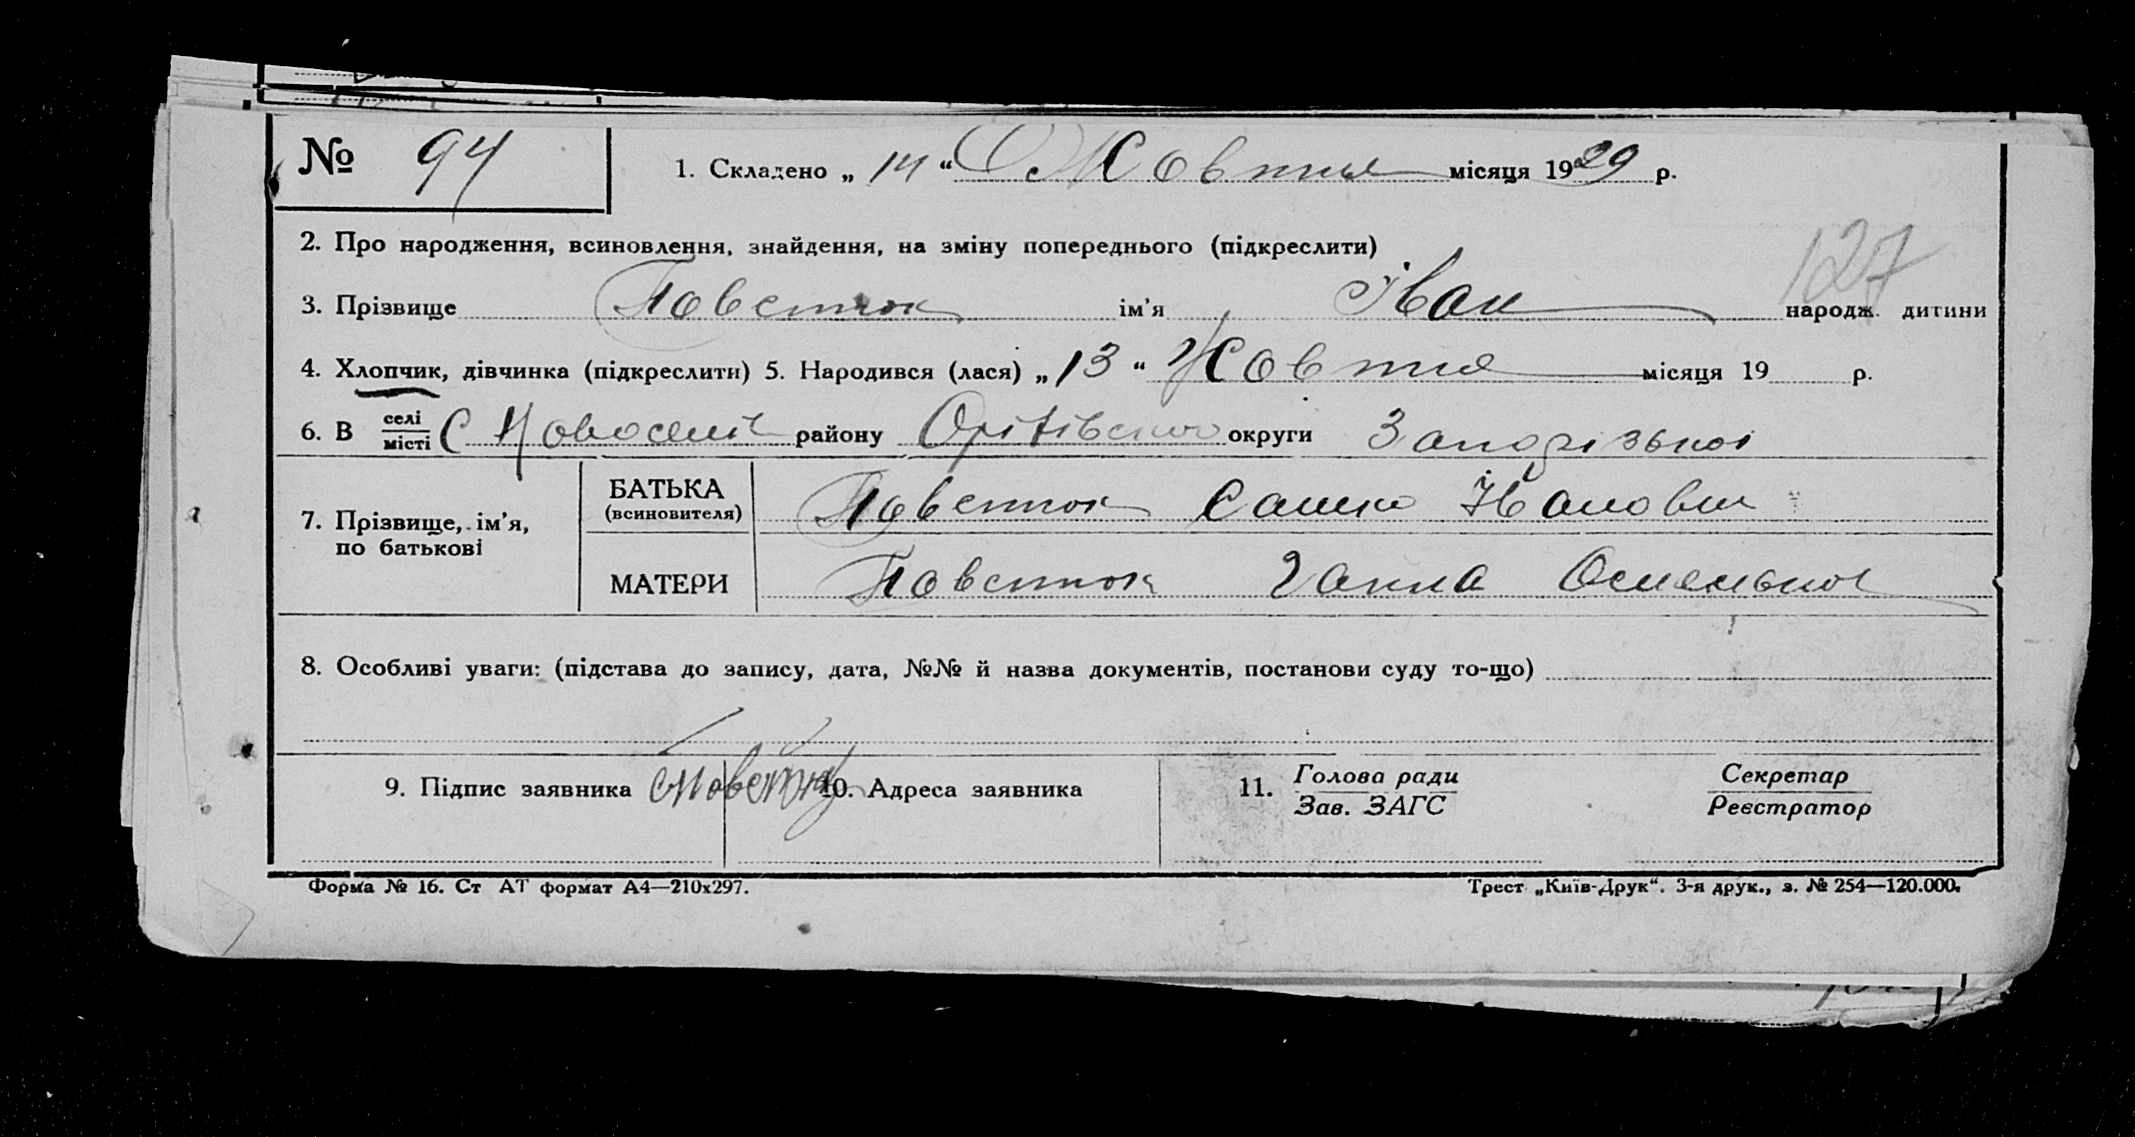 № 94 1. Складено „ 14 “ Жовтня місяця 1929 р.
2. Про народження, всиновлення, знайдення, на зміну попереднього (підкреслити) 127
3. Прізвище Повсток ім'я Іван народж. дитини
4. Хлопчик, дівчинка (підкреслити) 5. Народився (лася) „ 13 “ Жовтня місяця 19 р.
6. В селі місті С району округи Запорізької
7. Прізвище, ім'я, по батькові
БАТЬКА (всиновителя) Сашко
МАТЕРИ Ганна
8. Особливі уваги: (підстава до запису, дата, №№ й назва документів, постанови суду то-що)
9. Підпис заявника 10. Адреса заявника 11. Голова ради Секретар
Зав. ЗАГС Реєстратор
Форма № 16. Ст АТ формат А4—210х297. Трест „Київ-Друк“. 3-я друк., з. № 254—120.000.